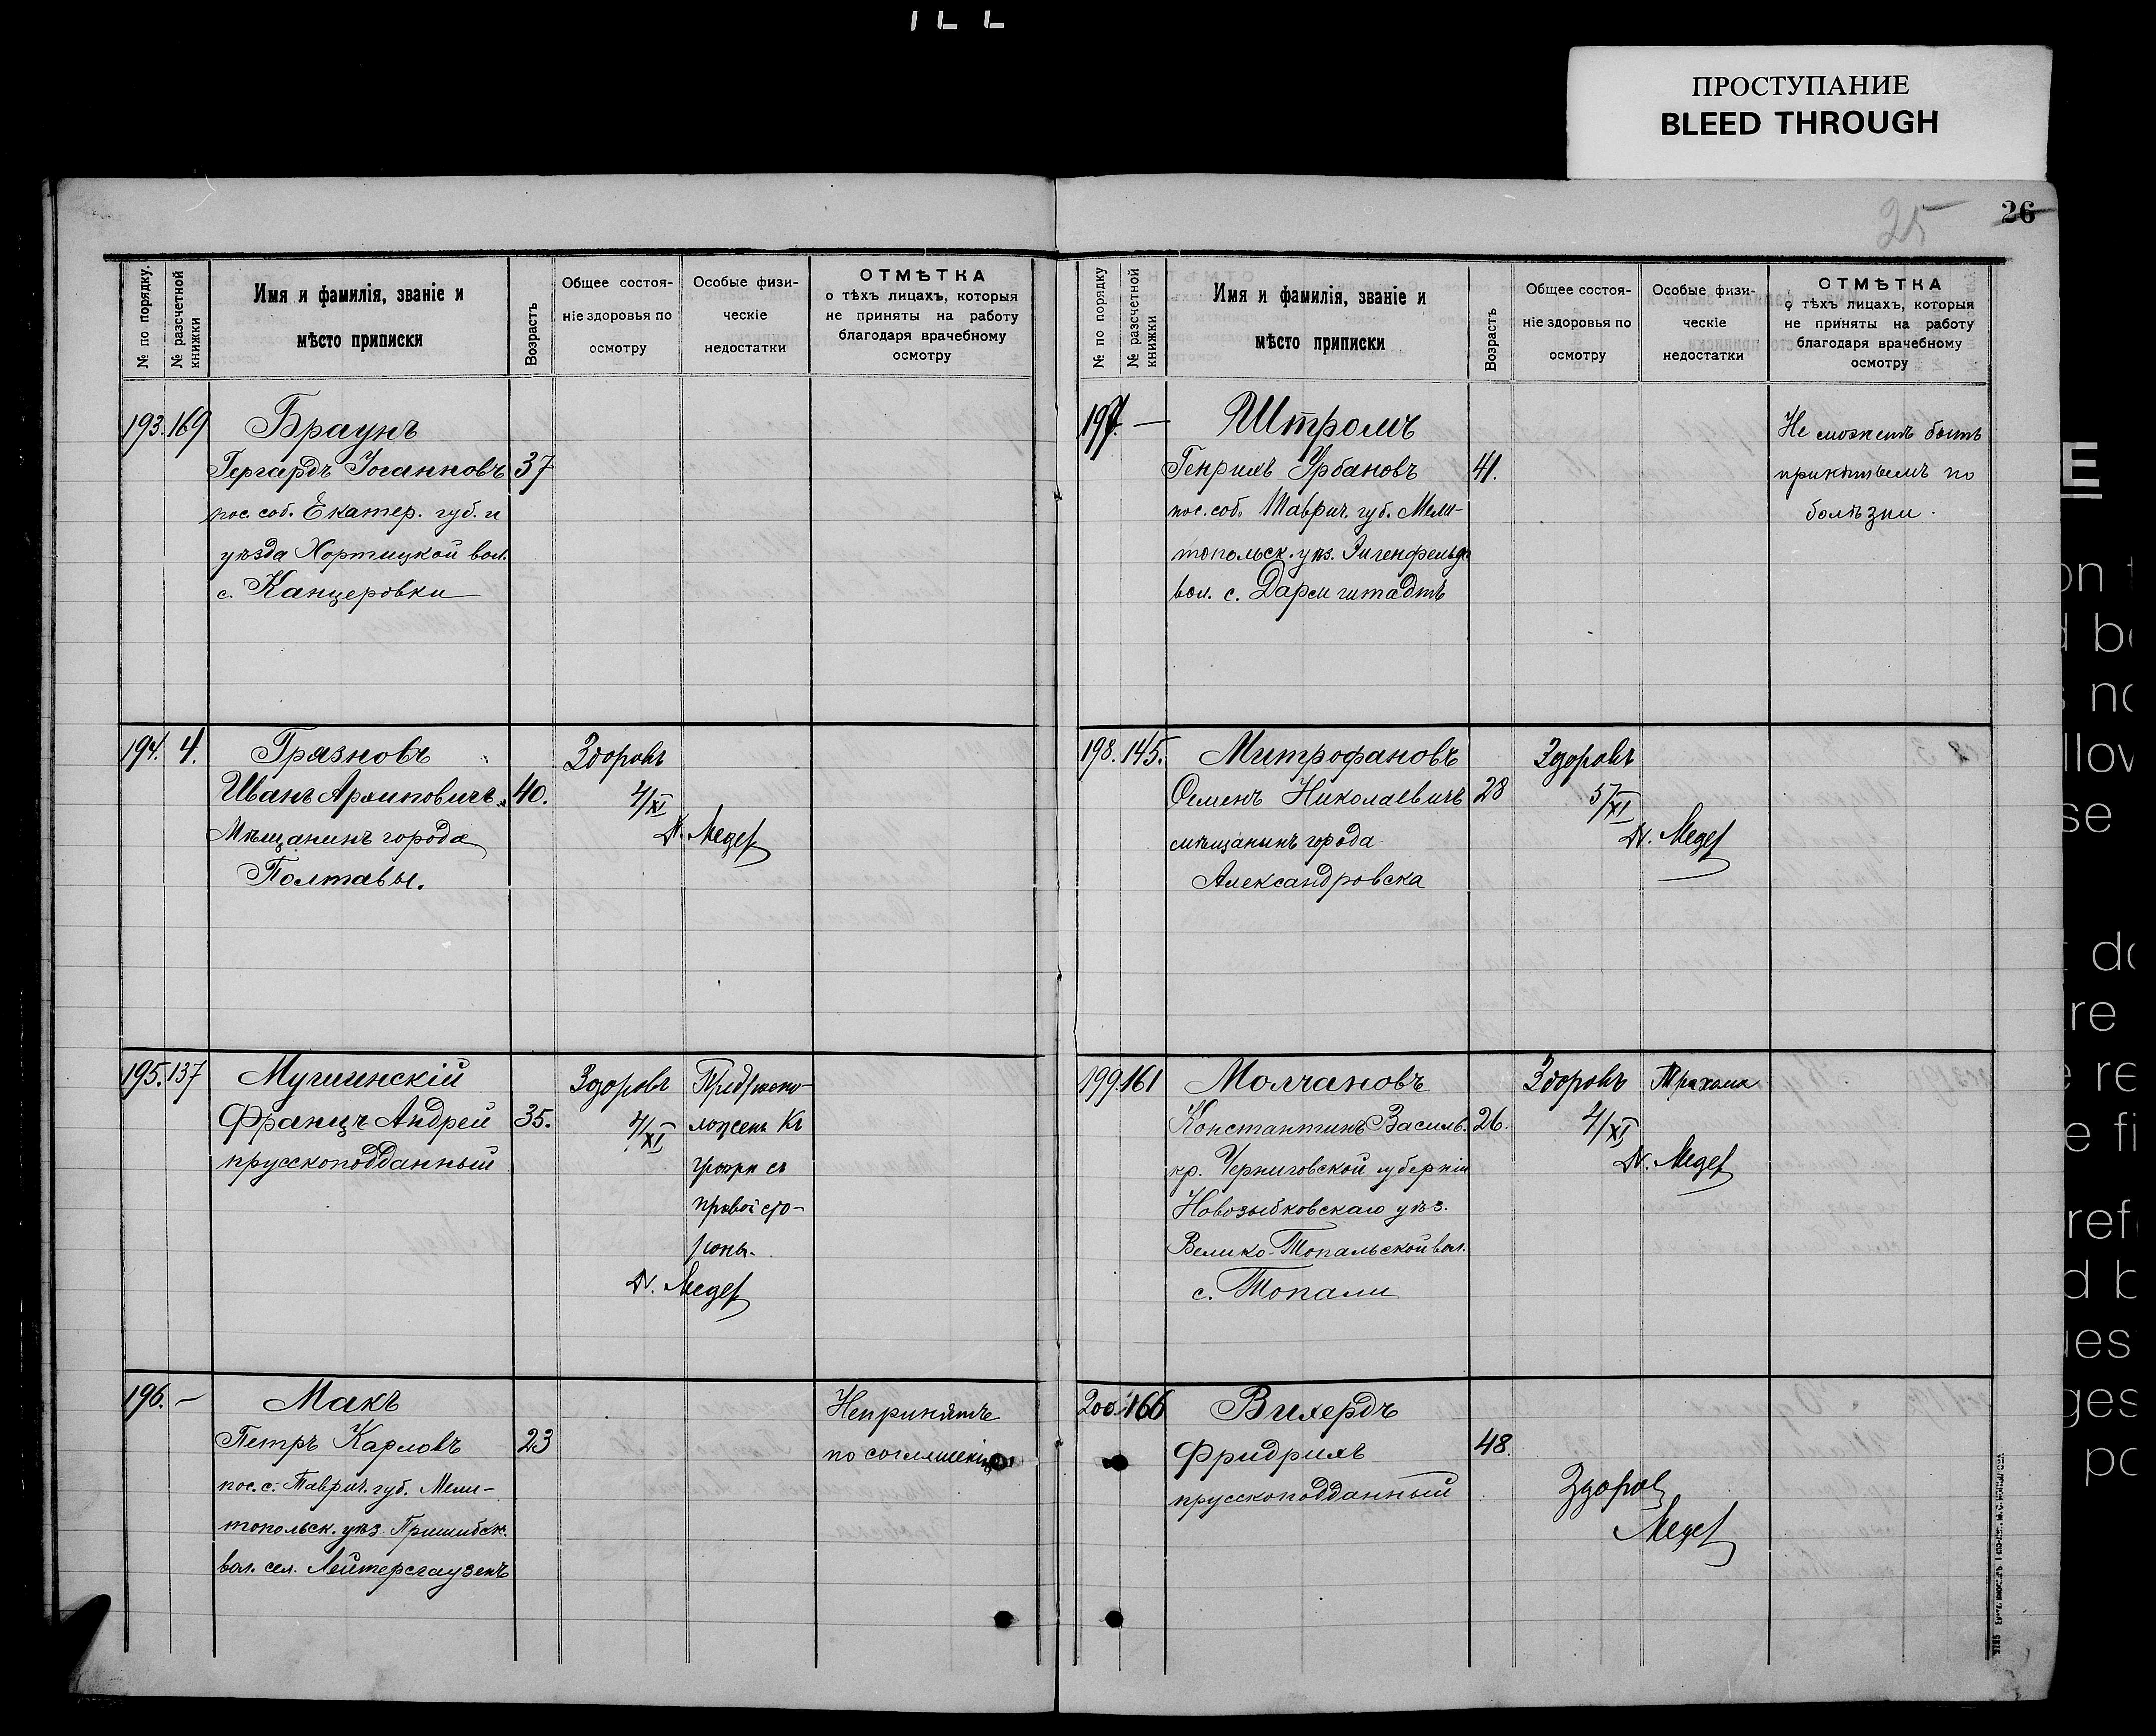 ПРОСТУПАНИЕ
BLEED THROUGH
25
26
№ по порядку.
№ разсчетной книжки
Имя и фамилія, званіе и
мѣсто приписки
Возрастъ
Общее состоя-
ніе здоровья по
осмотру
Особые физи-
ческіе
недостатки
ОТМѢТКА
о тѣхъ лицахъ, которыя
не приняты на работу
благодаря врачебному
осмотру
193. 169 Браунъ
Гергардъ Іоганновъ 37
пос. соб. Екатер. губ. и
уѣзда Хортицкой вол.
с. Канцеровки
194. 4. Грязновъ Здоровъ
Иванъ Архиповичъ 40. 4/XI
Мѣщанинъ города
Полтавы.
195. 137 Мучинскій Здоровъ
Францъ Андрей 35. 4/XI ложенъ къ
прусскоподданный
грыжи съ
правой сто-
роны.
196. — Макъ Непринятъ
Петръ Карловъ 23 по соглашенію
пос. с. Таврич. губ. Мели-
топольск. уѣз. Пришибск.
вол. сел. Лейтерсгаузенъ
№ по порядку
№ разсчетной книжки
Имя и фамилія, званіе и
мѣсто приписки
Возрастъ
Общее состоя-
ніе здоровья по
осмотру
Особые физи-
ческіе
недостатки
ОТМѢТКА
о тѣхъ лицахъ, которыя
не приняты на работу
благодаря врачебному
осмотру
197. — Штромъ Не можетъ быть
Генрихъ Урбановъ 41. принятымъ по
пос. соб. Таврич. губ. Мели- болѣзни.
топольск. уѣз. Эйгенфельд.
вол. с. Дармштадтъ
198. 145. Митрофановъ Здоровъ
Семенъ Николаевичъ 28 5/XI
мѣщанинъ города
Александровска
199. 161 Молчановъ Здоровъ Трахома
Константинъ Василь. 26. 4/XI
кр. Черниговской губерніи
Новозыбковскаго уѣз.
Велико-Топальской вол.
с. Топали
200. 166 Вихердъ
Фридрихъ 48.
прусскоподданный
Здоровъ